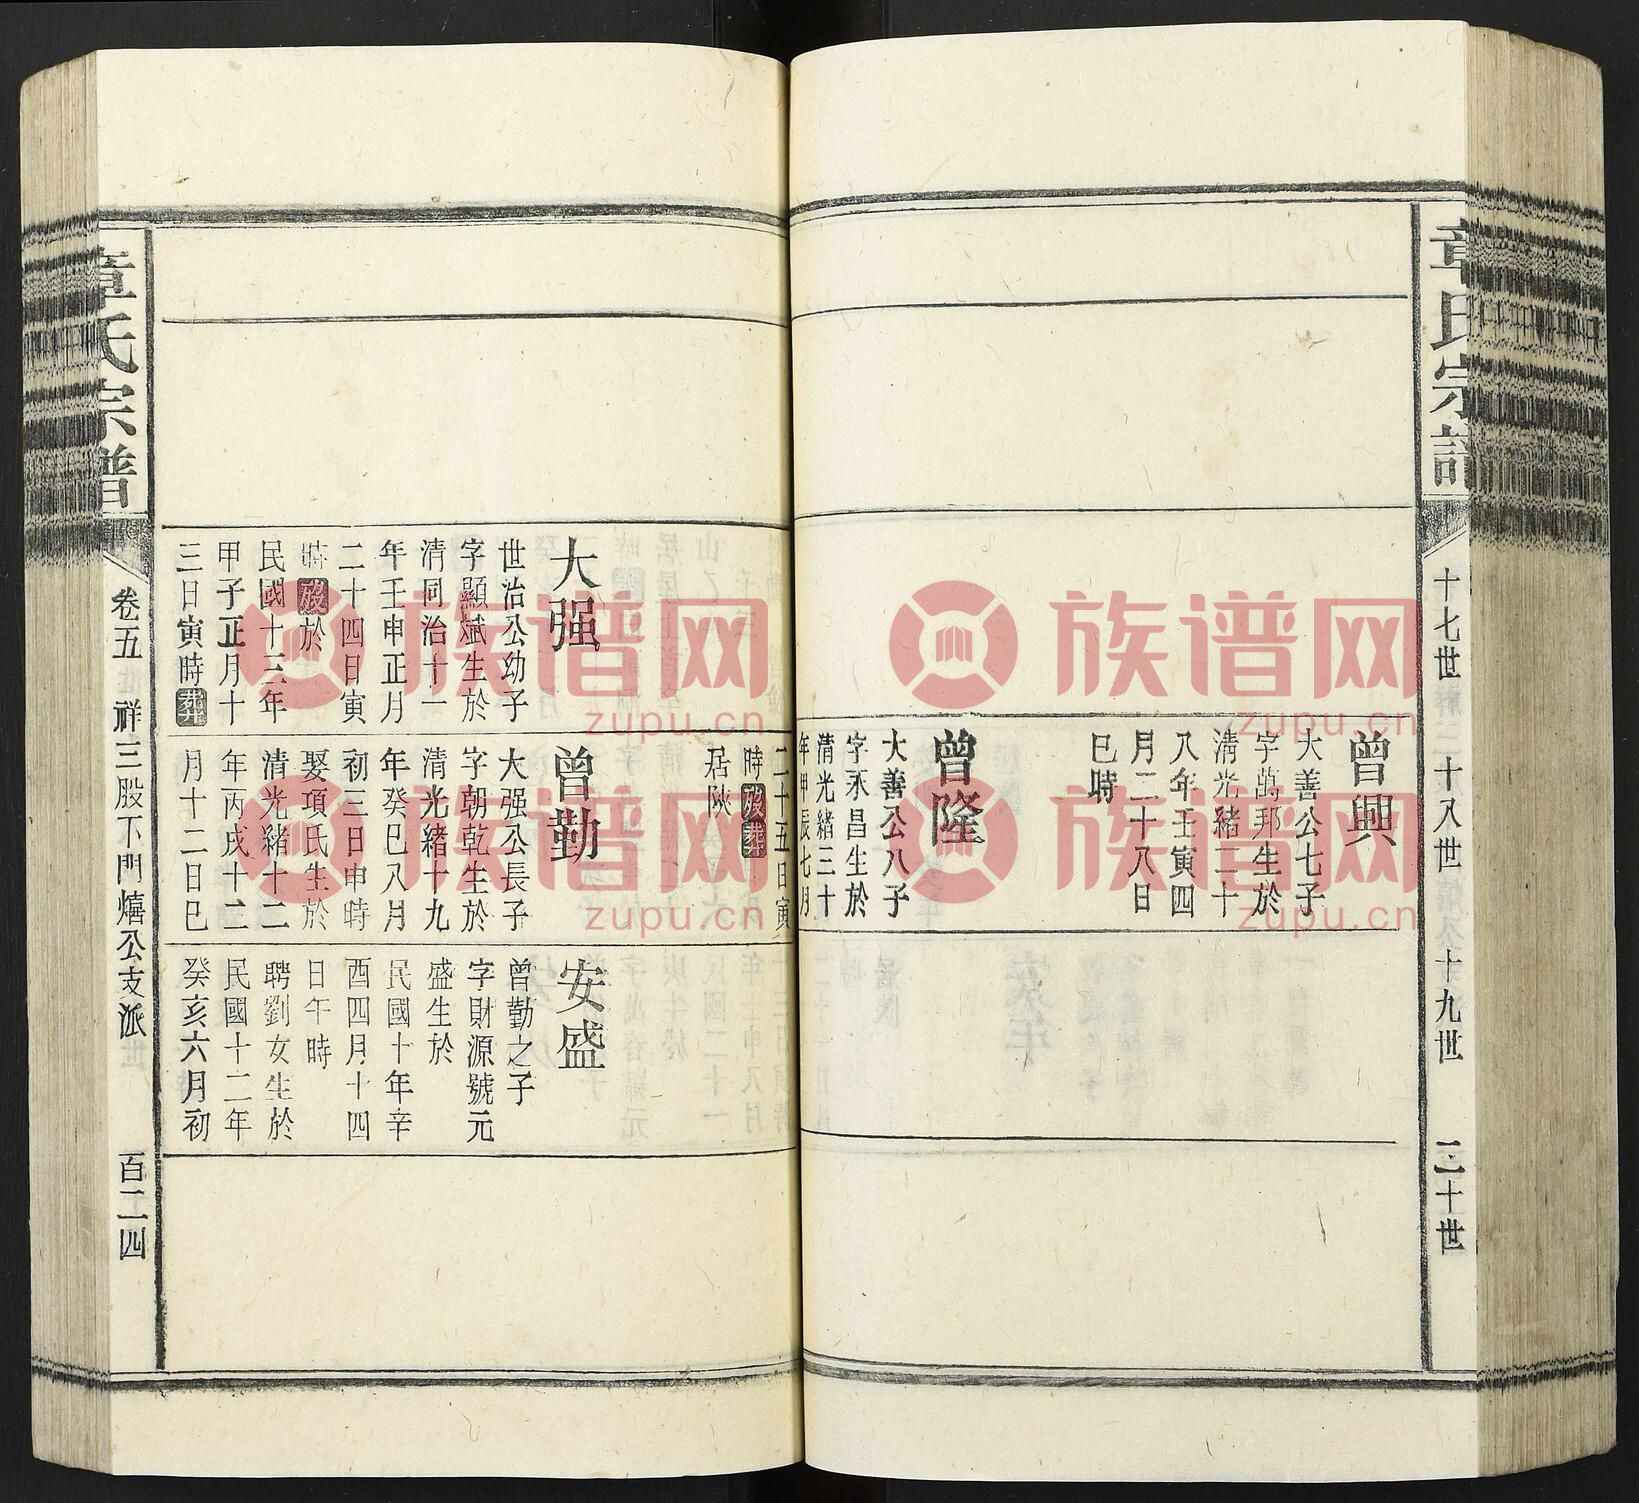 章氏宗譜
十七世
十八世
十九世
二十世
曾興
大善公七子
字萬邦生於
清光緒二十
八年壬寅四
月二十八日
巳時
曾隆
大善公八子
字永昌生於
清光緒三十
年甲辰七月
二十五日寅
時歿葬
居陝
大强
世治公幼子
字顯斌生於
清同治十一
年壬申正月
二十四日寅
時歿於
民國十三年
甲子正月十
三日寅時葬
曾勤
大强公長子
字朝乾生於
清光緒十九
年癸巳八月
初三日申時
娶項氏生於
清光緒十二
年丙戌十二
月十二日巳
安盛
曾勤之子
字財源號元
盛生於
民國十年辛
酉四月十四
日午時
聘劉女生於
民國十二年
癸亥六月初
章氏宗譜
卷五
祥三股下門熺公支派
百二四
族谱网
zupu.cn
族谱网
zupu.cn
族谱网
zupu.cn
族谱网
zupu.cn